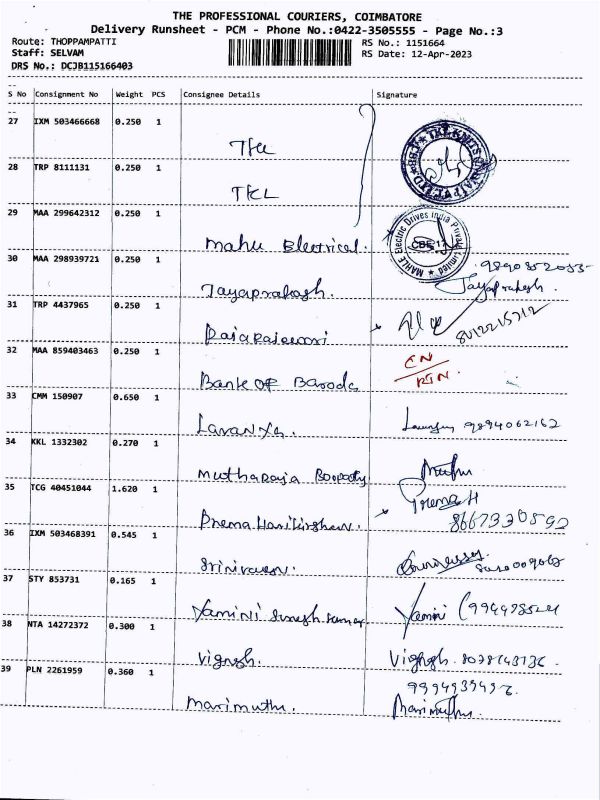 THE PROFESSIONAL COURIERS, COIMBATORE
Delivery Runsheet - PCM - Phone No.:0422-3505555 - Page No.:3
Route: THOPPAMPATTI RS No.: 1151664
Staff: SELVAM RS Date: 12-Apr-2023
DRS No.: DCJB115166403
S No Consignment No Weight PCS Consignee Details Signature
27 IXM 503466668 0.250 1
28 TRP 8111131 0.250 1
TKL
29 MAA 299642312 0.250 1
Mahle Electrical.
MAHLE Electric Drives India Private Limited
30 MAA 298939721 0.250 1
Jayaprakash. Jayaprakash.
31 TRP 4437965 0.250 1
Rajarajeswari 8012215712
32 MAA 859403463 0.250 1
Bank OF Baroda
33 CMM 150907 0.650 1
Lavanya. 9894062162
34 KKL 1332302 0.270 1
Mutharaja Boopathy Muthu
35 TCG 40451044 1.620 1
Prema Harikrishnan. Prema H
8667330592
36 IXM 503468391 0.545 1
Srinivasan.
37 STY 853731 0.165 1
Yamini Suresh Kumar Yamini
38 NTA 14272372 0.300 1
Vignesh. Vignesh.
39 PLN 2261959 0.360 1
Marimuthu. Marimuthu.